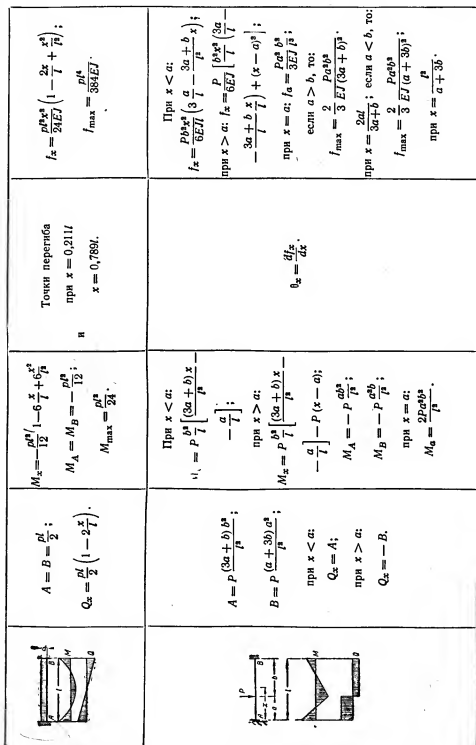 P
A B
l
M
Q
A = B = pl/2;
Q_x = pl/2 (1 − 2 x/l).
M_x = − pl²/12 (1 − 6 x/l + 6 x²/l²)
M_A = M_B = − pl²/12;
M_max = pl²/24.
Точки перегиба
при x = 0,211l
и x = 0,789l.
f_x = pl²x²/24EJ (1 − 2x/l + x²/l²)
f_max = pl⁴/384EJ
P
A B
x
a b
l
M
Q
A = P (3a + b) b²/l³;
B = P (a + 3b) a²/l³;
при x < a:
Q_x = A;
при x > a:
Q_x = − B.
При x < a:
= P b²/l [(3a + b) x/l² −
− a/l];
при x > a:
M_x = P b²/l [(3a + b) x/l² −
− a/l] − P (x − a);
M_A = − P ab²/l²;
M_B = − P a²b/l²;
при x = a:
M_a = 2Pa²b²/l³.
θ_x = df_x/dx.
При x < a:
f_x = Pb²x²/6EJl (3 a/l − 3a + b/l² x);
при x > a: f_x = P/6EJ [b²x²/l (3a/l −
− 3a + b/l² x) + (x − a)³]
при x = a; f_a = Pa³b³/3EJl³;
если a > b, то:
f_max = 2/3 Pa³b²/EJ (3a + b)².
при x = 2al/3a + b; если a < b, то:
f_max = 2/3 Pa²b³/EJ (a + 3b)²;
при x = l²/a + 3b.